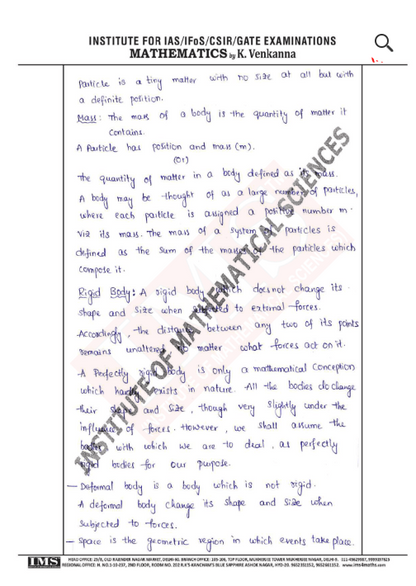 INSTITUTE FOR IAS/IFoS/CSIR/GATE EXAMINATIONS
MATHEMATICS by K. Venkanna
Particle is a tiny matter with no size at all but with
a definite position.
Mass: The mass of a body is the quantity of matter it
contains.
A Particle has position and mass (m).
(or)
The quantity of matter in a body defined as its mass.
A body may be thought of as a large number of particles,
where each particle is assigned a positive number m.
viz its mass. The mass of a system of particles is
defined as the sum of the masses of the particles which
compose it.
Rigid Body: A rigid body which does not change its
shape and size when subjected to external forces.
Accordingly, the distance between any two of its points
remains unaltered no matter what forces act on it.
A Perfectly rigid body is only a mathematical conception
which hardly exists in nature. All the bodies do change
their shape and size, though very slightly under the
influence of forces. However, we shall assume the
bodies with which we are to deal, as perfectly
rigid bodies for our purpose.
— Deformal body is a body which is not rigid.
A deformal body change its shape and size when
subjected to forces.
— Space is the geometric region in which events take place.
INSTITUTE OF MATHEMATICAL SCIENCES
IMS